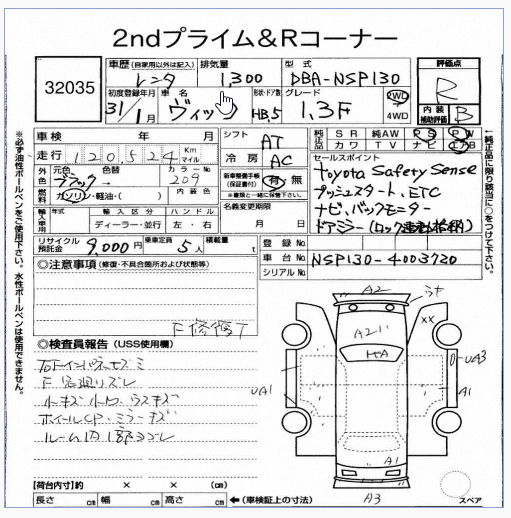 2ndプライム&Rコーナー
32035
車歴(自家用以外は記入)
レンタ
排気量
1,300
型式
DBA-NSP130
評価点
R
初度登録年月
31年1月
車名
ヴィッツ
形状・ドア数
HB,5
グレード
1.3F
2WD
4WD
内装
補助評価
B
車検 年 月
シフト
AT
純正品
SR 純AW PS PW
カワ TV ナビ エアB
走行
120,524
Km
マイル
冷房
AC
セールスポイント
Toyota Safety Sense
プッシュスタート、ETC
ナビ、バックモニター
ドアミラー(ロック連動格納)
外色
元色
ブラック
色替
カラーNo
209
新車整備手帳
(保証書付)
有・無
燃料
ガソリン・軽油・( )
内装色
名義変更期限
月 日
輸入車用
年式
輸入区分
ディーラー・並行
ハンドル
左・右
リサイクル預託金
9,000円
乗車定員
5人
積載量
登録No
車台No
NSP130-4003720
シリアルNo
◎注意事項(修復・不具合箇所および状態等)
F修復了
◎検査員報告(USS使用欄)
F
小キズ
ホイールCP・ミラーキズ
ルーム内
A2
A21
A1
UA1
UA3
A1
A1
A3
XX
スペア
【荷台内寸】約 × × (cm)
長さ cm 幅 cm 高さ cm ←(車検証上の寸法)
※必ず油性ボールペンをご使用下さい。水性ボールペンは使用できません。
←純正品に限り該当に○をつけて下さい。